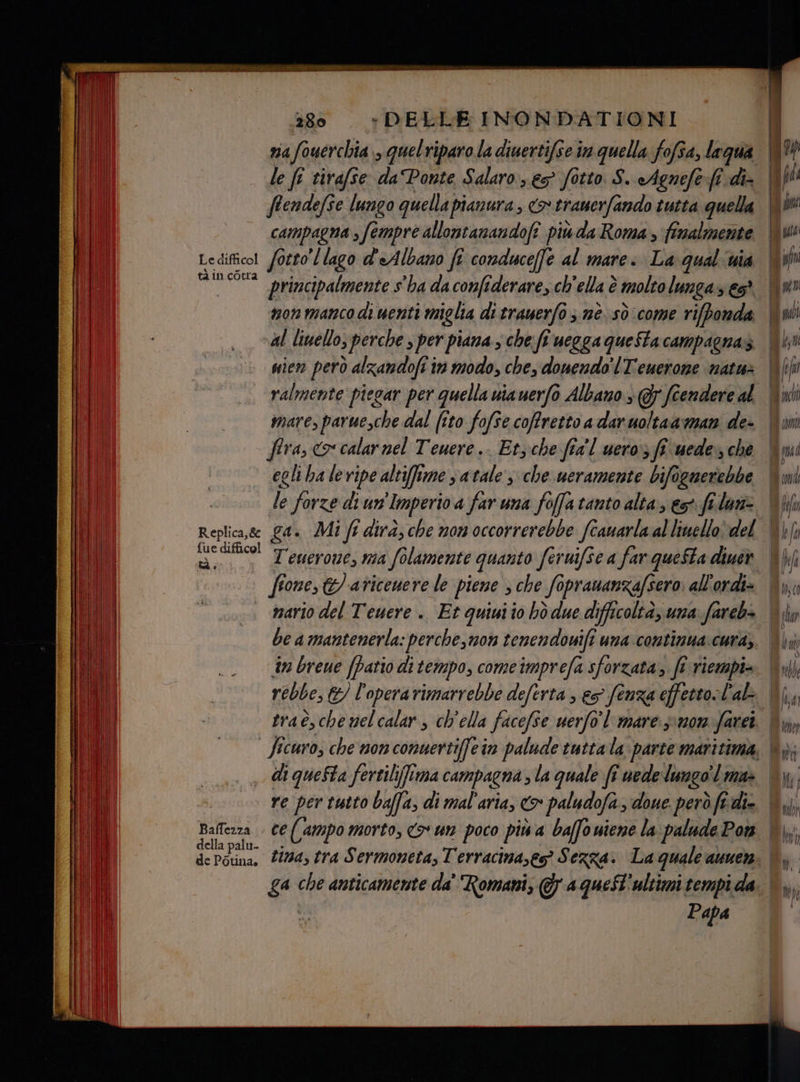 280 DELLE INONDATIONI
na souerchia, quel riparo la diuertisse in quella fossa, laqua
le si tirasse da Ponte Salaro, & sotto S. Agnese si di-
stendesse lungo quella pianura, & trauersando tutta quella
campagna, sempre allontanandosi più da Roma, finalmente
Le difficol
tà in cōtra
sotto'l lago d'Albano si conducesse al mare. La qual uia
principalmente s'ha da considerare, ch'ella è molto lunga, &
non manco di uenti miglia di trauerso, nè sò come risponda
al liuello, perche, per piana, che si uegga questa campagna,
uien però alzandosi in modo, che, douendo'l Teuerone natu-
ralmente piegar per quella uia uerso Albano, & scendere al
mare, parue, che dal sito fosse costretto a dar uolta a man de-
stra, & calar nel Teuere. Et, che sia'l uero, si uede, che
egli ha le ripe altissime, a tale, che ueramente bisognerebbe
le forze di un'Imperio a far una fossa tanto alta, & sì lun-
Replica, &
sue difficol
tà.
ga. Mi si dirà, che non occorrerebbe scauarla al liuello del
Teuerone, ma solamente quanto seruisse a far questa diuer
sione, & a riceuere le piene, che soprauanzassero all'ordi-
nario del Teuere. Et quiui io hò due difficoltà, una sareb-
be a mantenerla: perche, non tenendouisi una continua cura,
in breue spatio di tempo, come impresa sforzata, si riempi-
rebbe, & l'opera rimarrebbe deserta, & senza effetto: l'al-
tra è, che nel calar, ch'ella facesse uerso'l mare, non sarei
sicuro, che non conuertisse in palude tutta la parte maritima,
di questa fertilissima campagna, la quale si uede lungo'l ma-
re per tutto bassa, di mal'aria, & paludosa, doue però si di-
Bassezza
della palu-
de Pōtina.
ce Campo morto, & un poco più a basso uiene la palude Pon
tina, tra Sermoneta, Terracina, & Sezza. La quale auuen
ga che anticamente da' Romani, & a quest'ultimi tempi da
Papa